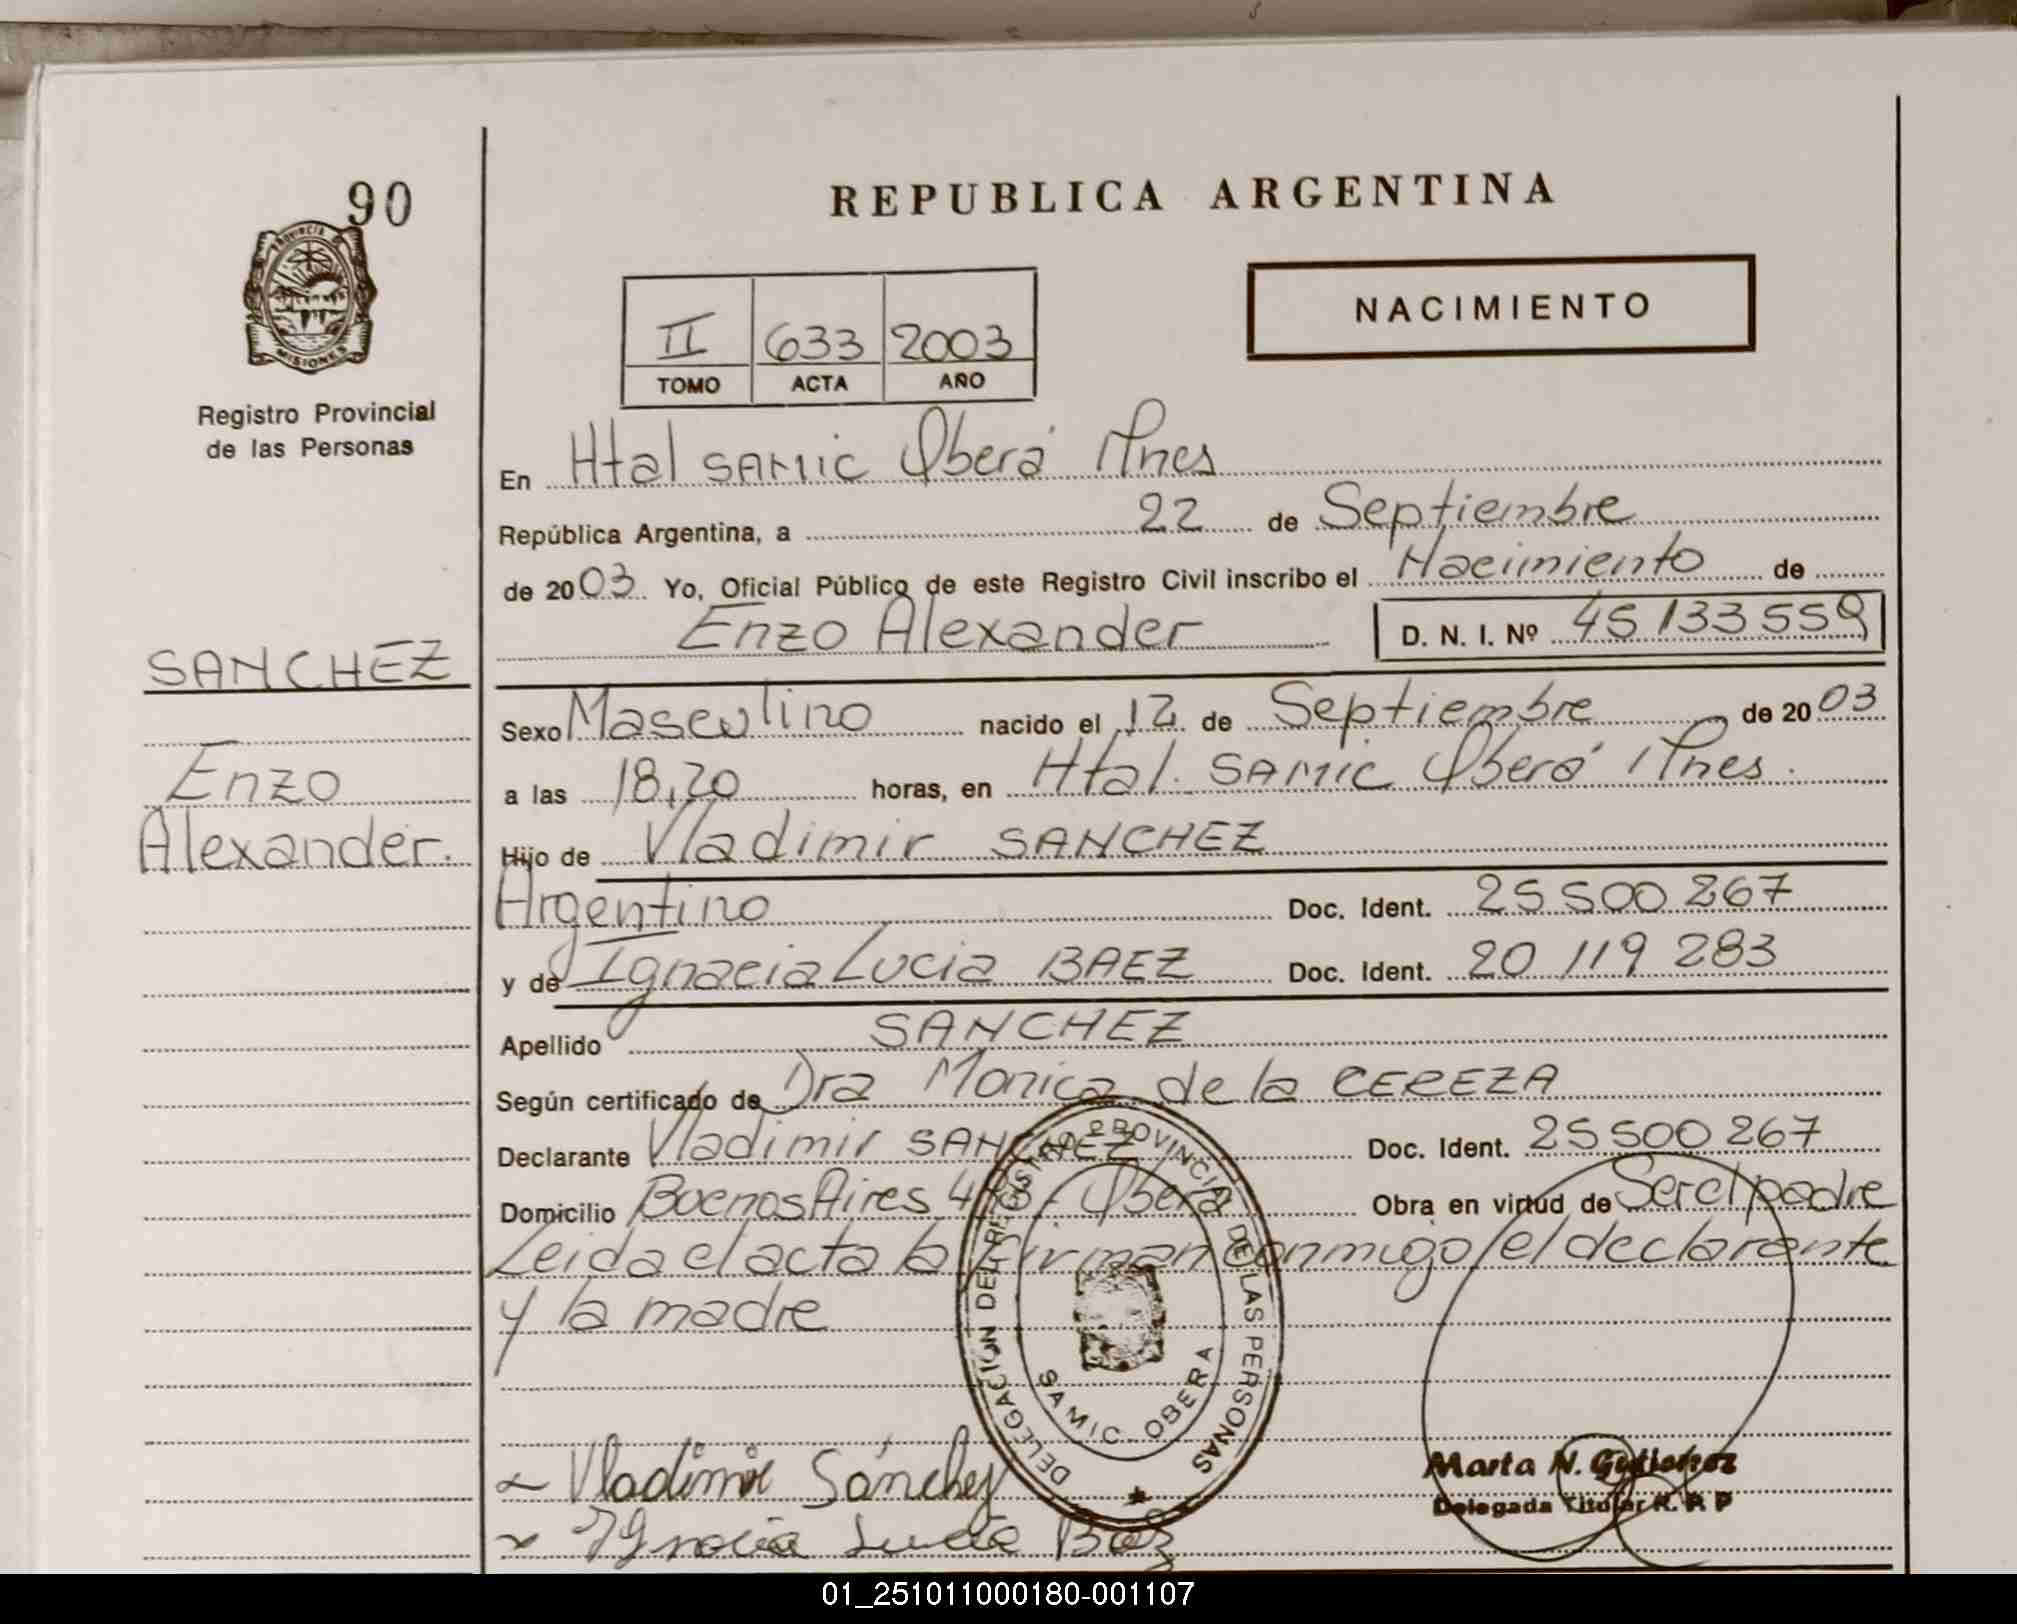 90
PROVINCIA
MISIONES
Registro Provincial
de las Personas
SANCHEZ
Enzo
Alexander.
REPUBLICA ARGENTINA
NACIMIENTO
II 633 2003
TOMO ACTA AÑO
En Htal SAMIC Oberá Mnes
República Argentina, a 22 de Septiembre
de 2003. Yo, Oficial Público de este Registro Civil inscribo el Nacimiento de
Enzo Alexander D. N. I. Nº 45 133 559
Sexo Masculino nacido el 12 de Septiembre de 2003
a las 18,20 horas, en Htal. SAMIC Oberá Mnes.
Hijo de Vladimir SANCHEZ
Argentino Doc. Ident. 25 500 267
y de Ignacia Lucia BAEZ Doc. Ident. 20 119 283
Apellido SANCHEZ
Según certificado de Dra Monica de la CEREZA
Declarante Vladimir SANCHEZ Doc. Ident. 25 500 267
Domicilio Buenos Aires Oberá Obra en virtud de Ser el padre
Leida el acta la firman conmigo el declarante
y la madre
DELEGACIÓN DEL REGISTRO PROVINCIAL DE LAS PERSONAS
SAMIC OBERA
Vladimir Sánchez
Ignacia Lucia Baez
Marta N. Gutierrez
Delegada Titular R. P. P
01_251011000180-001107